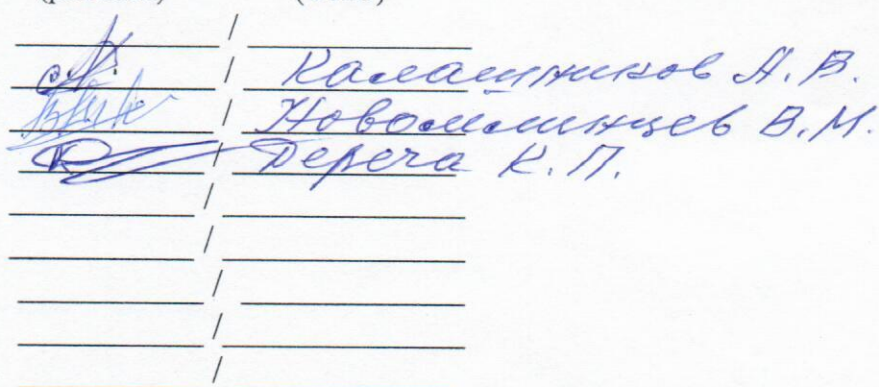 /
/ Калашников А. В.
/ Новомлинцев В. М.
/ Дереча К. П.
/
/
/
/
/